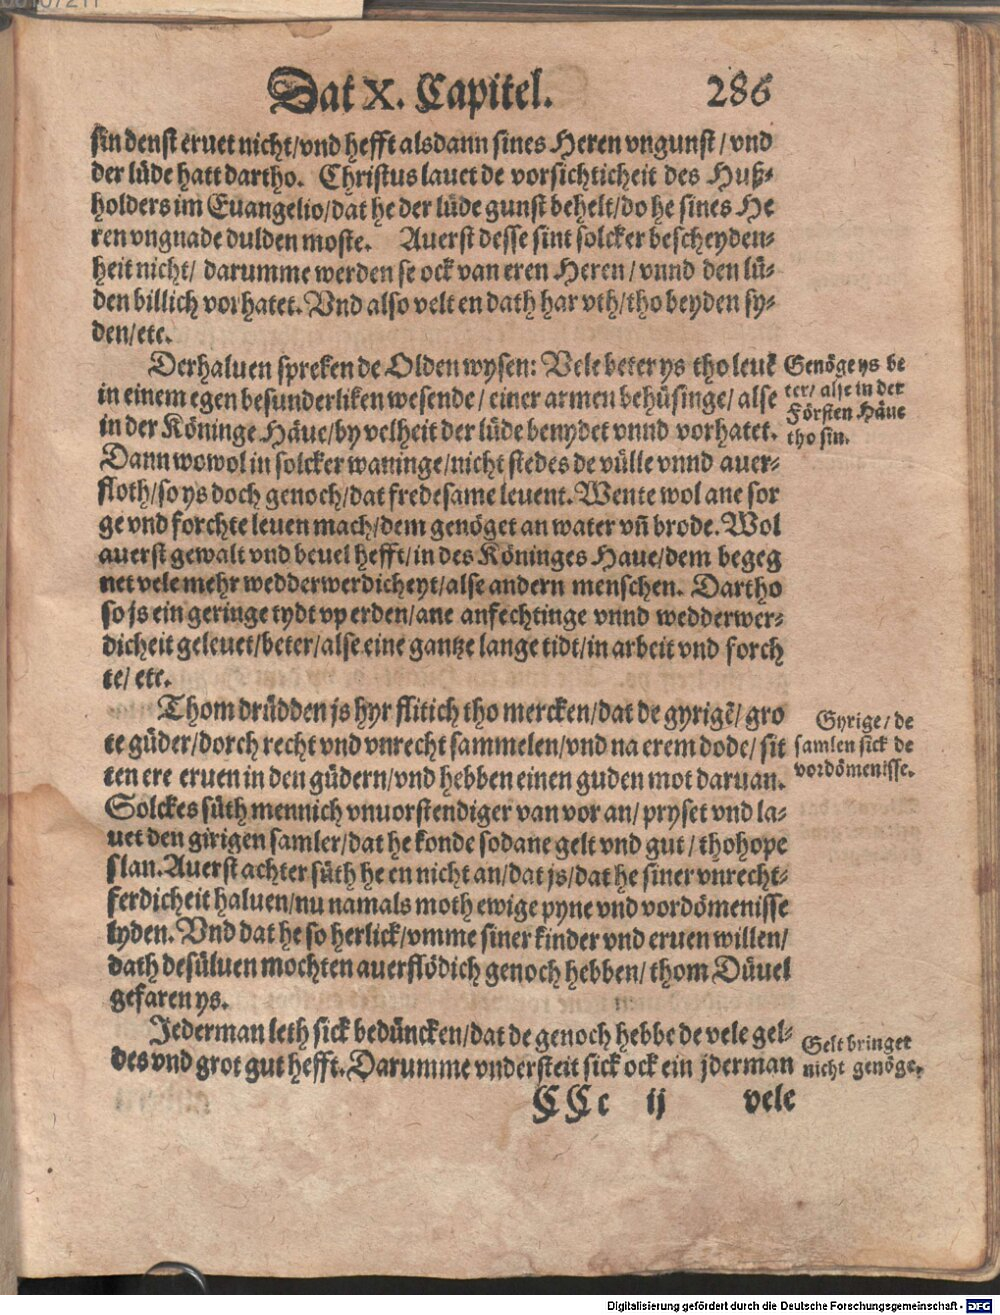 Dat X. Capitel. 286
sin denst eruet nicht/vnd hefft alsdann sines Heren vngunst/vnd
der lüde hatt dartho. Christus lauet de vorsichticheit des Huß-
holders im Euangelio/dat he der lüde gunst behelt/do he sines He
ren vngnade dulden moste. Auerst desse sint solcker bescheyden-
heit nicht/ darumme werden se ock van eren Heren/vnnd den lü-
den billich vorhatet. Vnd also velt en dath har vth/tho beyden sy-
den/etc.
Derhaluen spreken de Olden wysen: Vele beter ys tho leuē
in einem egen besunderliken wesende/ einer armen behüsinge/ alse
in der Köninge Häue/by velheit der lüde benydet vnnd vorhatet.
Dann wowol in solcker waninge/nicht stedes de vülle vnnd auer-
floth/so ys doch genoch/dat fredesame leuent. Wente wol ane sor
ge vnd forchte leuen mach/dem genöget an water vñ brode. Wol
auerst gewalt vnd beuel hefft/in des Köninges Haue/dem begeg
net vele mehr wedderwerdicheyt/alse andern menschen. Dartho
so js ein geringe tydt vp erden/ane anfechtinge vnnd wedderwer-
dicheit geleuet/beter/alse eine gantze lange tidt/in arbeit vnd forch
te/ etc.
Genöge ys be
ter/ alse in der
Försten Häue
tho sin.
Thom drüdden js hyr flitich tho mercken/dat de gyrigē/ gro
te güder/dorch recht vnd vnrecht sammelen/vnd na erem dode/ sit
ten ere eruen in den güdern/vnd hebben einen guden mot daruan.
Solckes süth mennich vnuorstendiger van vor an/ pryset vnd la-
uet den girigen samler/dat he konde sodane gelt vnd gut/ thohope
slan. Auerst achter süth he en nicht an/dat js/dat he siner vnrecht-
ferdicheit haluen/nu namals moth ewige pyne vnd vordömenisse
lyden. Vnd dat he so herlick/vmme siner kinder vnd eruen willen/
dath desüluen mochten auerflödich genoch hebben/ thom Düuel
gefaren ys.
Gyrige/ de
samlen sick de
vordömenisse.
Jederman leth sick bedüncken/dat de genoch hebbe de vele gel-
des vnd grot gut hefft. Darumme vndersteit sick ock ein jderman
Gelt bringet
nicht genöge.
CCc ij vele
Digitalisierung gefördert durch die Deutsche Forschungsgemeinschaft - DFG